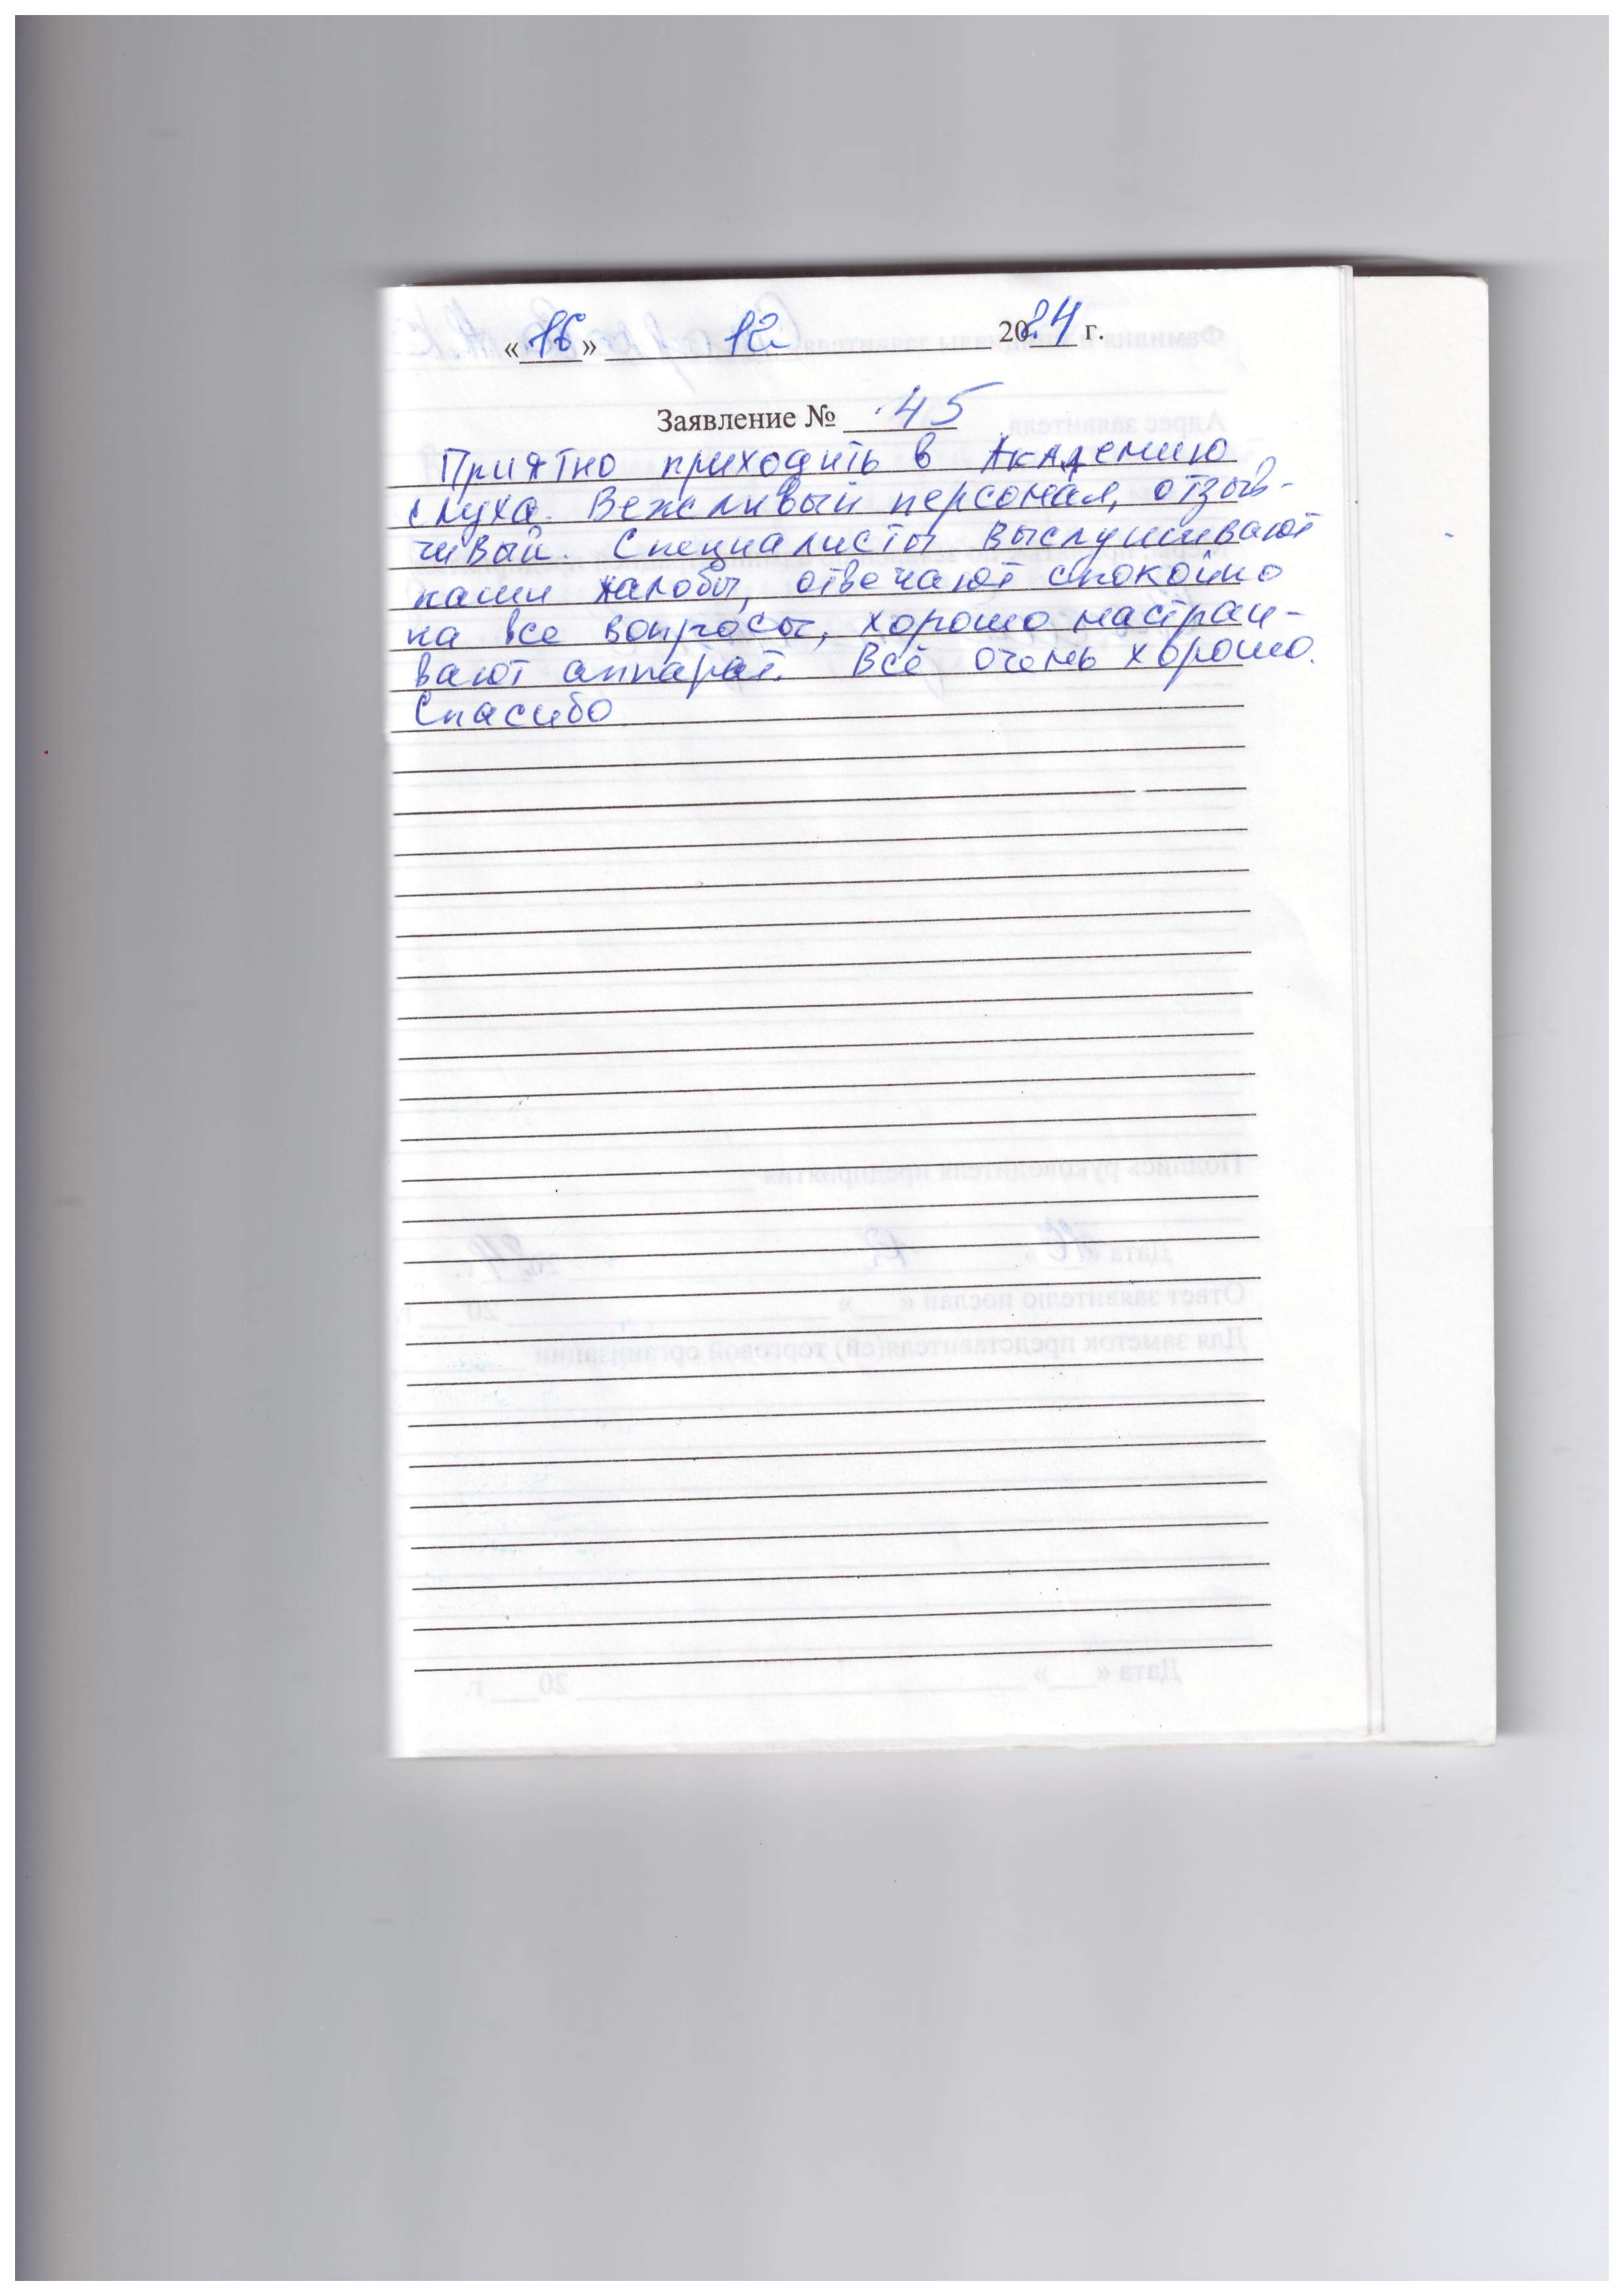 «16» 12 2024 г.
Заявление № 45
Приятно приходить в Академию
слуха. Вежливый персонал, отзыв-
чивый. Специалисты выслушивают
наши жалобы, отвечают спокойно
на все вопросы, хорошо настраи-
вают аппарат. Всё очень хорошо.
Спасибо